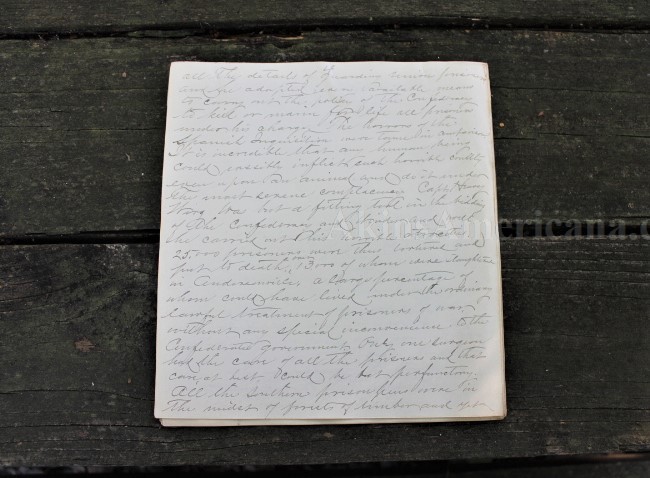 all the details of guarding union prisoners
and he adopted every available means
to carry out the policy of the Confederacy
to kill or maim for life all prisoners
under his charge. The horrors of the
Spanish Inquisition were tame in comparison
It is incredible that any human being
could possible inflict such horrible cruelty
even upon an animal and do it under
the most serene complacency Capt Henri
Wirz was but a fitting tool in the hands
of the Confederacy and
he carried out his horrible atrocities
25,000 prisoners were thus tortured and
put to death, 13000 of whom were slaughtered
in Andersonville a large percentage of
whom could have lived under the ordinary
lawful treatment of prisoners of war
without any special inconvenience to the
Confederate government But one surgeon
had the care of all the prisoners and that
care at best could be but perfunctory.
All the Southern prison pens were in
the midst of forests of timber and yet
AkinsAmericana.c